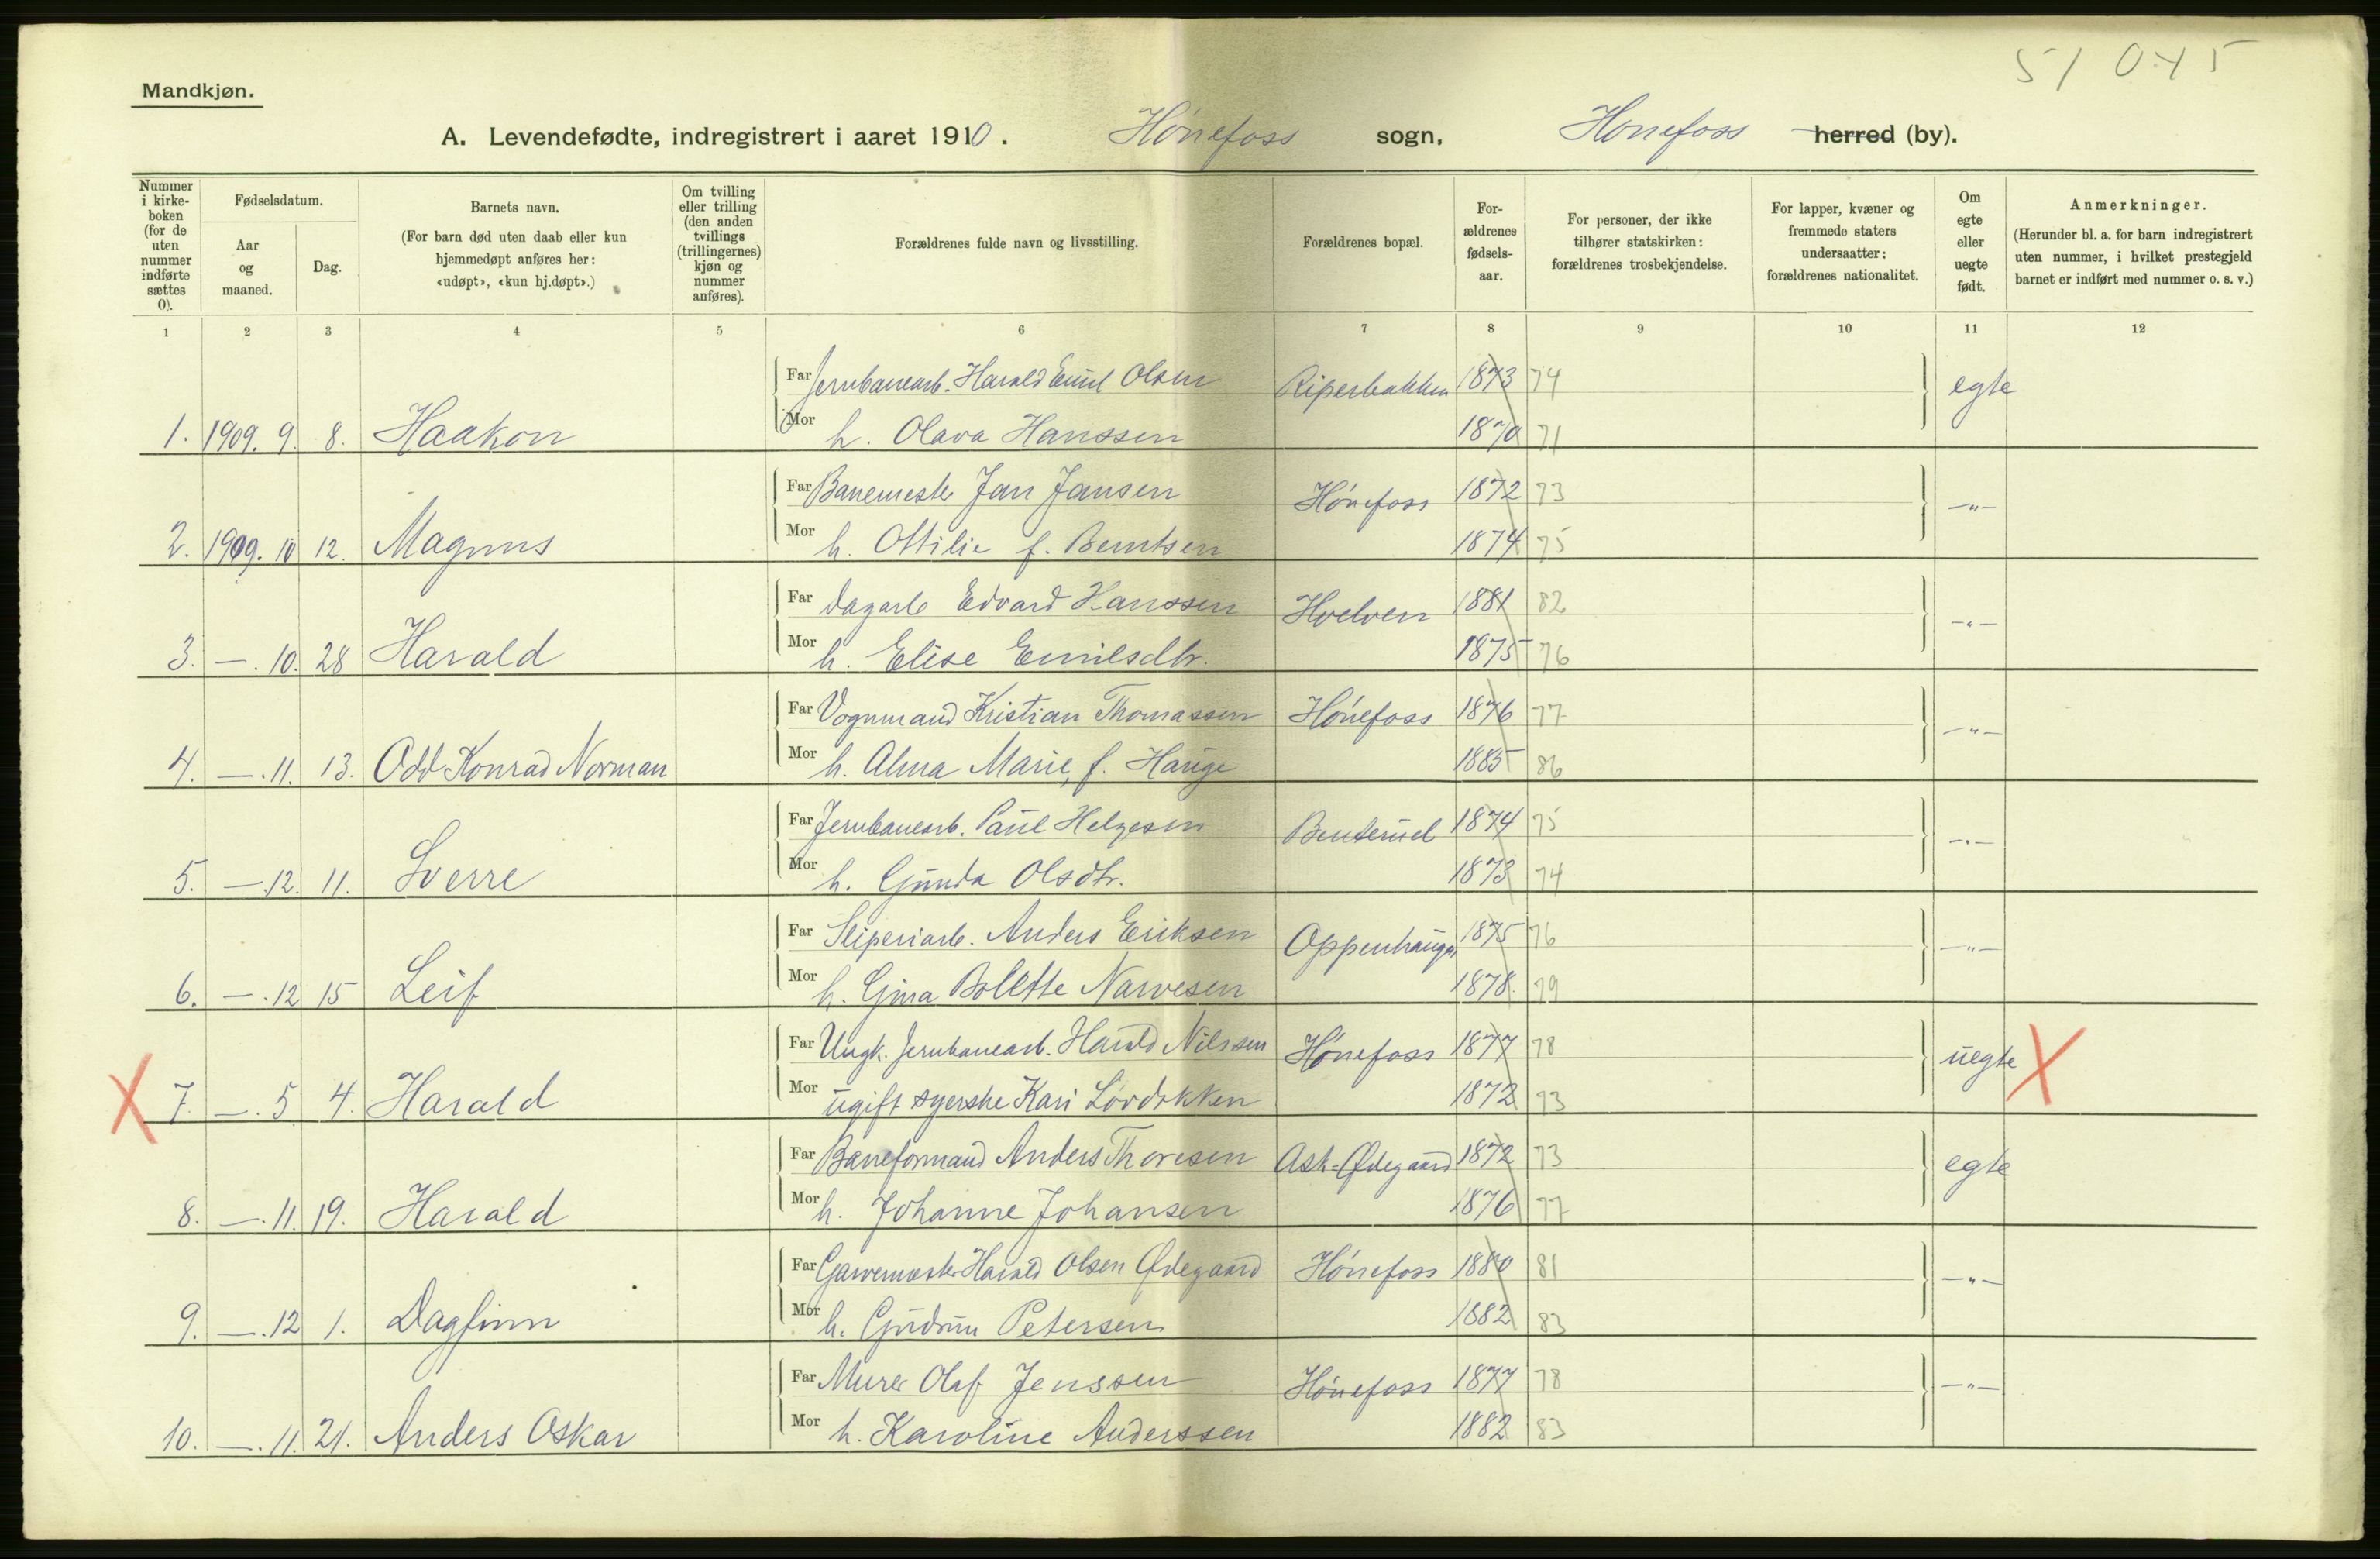 51 045
Mandkjøn.
A. Levendefødte, indregistrert i aaret 1910. Hönefoss sogn, Hönefoss herred (by).
Nummer i kirke-boken (for de uten nummer indførte sættes 0).
Fødselsdatum.
Aar og maaned.
Dag.
Barnets navn.
(For barn død uten daab eller kun hjemmedøpt anføres her: «udøpt», «kun hj.døpt».)
Om tvilling eller trilling (den anden tvillings (trillingernes) kjøn og nummer anføres).
Forældrenes fulde navn og livsstilling.
Forældrenes bopæl.
For-ældrenes fødsels-aar.
For personer, der ikke tilhører statskirken: forældrenes trosbekjendelse.
For lapper, kvæner og fremmede staters undersaatter: forældrenes nationalitet.
Om egte eller uegte født.
Anmerkninger.
(Herunder bl. a. for barn indregistrert uten nummer, i hvilket prestegjeld barnet er indført med nummer o. s. v.)
1 2 3 4 5 6 7 8 9 10 11 12
Far Jernbanearb. Harald Emil Olsen Riperbakken 1873 74 egte
1. 1909. 9. 8. Haakon Mor h. Olava Hanssen 1870 71
Far Banemester Jan Jansen Hönefoss 1872 73 —"—
2. 1909. 10 12. Magnus Mor h. Ottilie f. Berntsen 1874 75
Far Dagarb Edvard Hanssen Hvelven 1881 82 —"—
3. —. 10. 28 Harald Mor h. Elise Emilsdtr. 1875 76
Far Vognmand Kristian Thomassen Hönefoss 1876 77 —"—
4. —. 11. 13. Odd Konrad Norman Mor h. Alma Marie, f. Hauge 1885 86
Far Jernbanearb. Paul Helgesen Benterud 1874 75 —"—
5. —. 12. 11. Sverre Mor h. Gunda Olsdtr. 1873 74
Far Sliperiarb. Anders Eriksen Oppenhaugen 1875 76 —"—
6. —. 12 15 Leif Mor h. Gina Bolette Narvesen 1878. 79
Far Ungk. Jernbanearb. Harald Nilssen Hönefoss 1877 78 uegte X
X 7. —. 5 4. Harald Mor ugift syerske Kari Lövdokken 1872 93
Far Baneformand Anders Thoresen Ask-Ødegaard 1872 73 egte
8. —. 11. 19. Harald Mor h. Johanne Johansen 1876 77
Far Garvermester Harald Olsen Ødegaard Hönefoss 1880 81 —"—
9. —. 12 1. Dagfinn Mor h. Gudrun Petersen 1882 83
Far Murer Olaf Jenssen Hönefoss 1877 78 —"—
10. —. 11. 21. Anders Oskar Mor h. Karoline Anderssen 1882 83